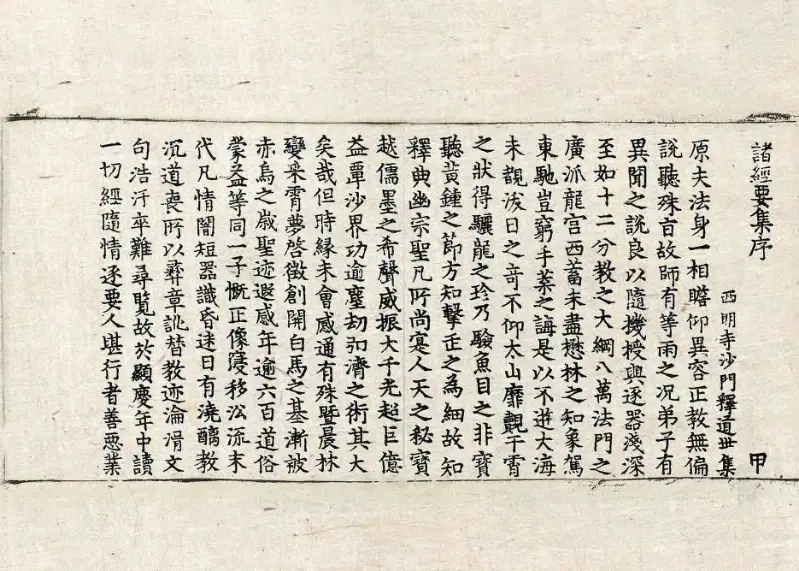 諸經要集序
西明寺沙門釋道世集 甲
原夫法身一相瞻仰異容正教無偏
說聽殊旨故師有等雨之況弟子有
異聞之說良以隨機授與逐器淺深
至如十二分教之大綱八萬法門之
廣派龍宮西蓄未盡懋林之知象駕
東馳豈窮手葉之誨是以不遊大海
未覩浴日之竒不仰太山靡覿干霄
之狀得驪龍之珍乃驗魚目之非寶
聽黃鍾之節方知擊缶之為細故知
釋典幽宗聖凡所尚寔人天之秘寶
越儒墨之希聲威振大千光超巨億
益覃沙界功逾塵劫弘濟之術其大
矣哉但時緣未會感通有殊暨晨林
變采霄夢啓徵創開白馬之基漸被
赤烏之歲聖迹遐感年逾六百道俗
蒙益等同一子慨正像寖移訟流末
代凡情闇短器識昏迷日有澆醨教
沉道喪所以彝章訛替教迹淪湑文
句浩汗卒難尋覽故於顯慶年中讀
一切經隨情逐要人堪行者善惡業